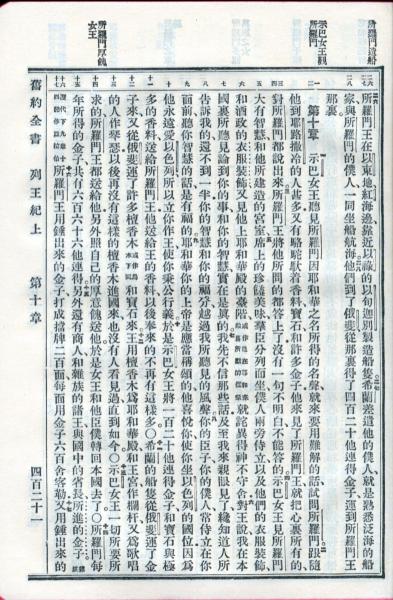 所羅門造船
示巴女王覲所羅門
所羅門厚餽女王
所羅門王在以東地紅海邊靠近以祿的以旬迦別製造船隻希蘭差遣他的僕人就是熟悉泛海的船
家與所羅門的僕人一同坐船航海他們到了俄斐從那裏得了四百二十他連得金子運到所羅門王
那裏
第十章 示巴女王聽見所羅門因耶和華之名所得的名聲就來要用難解的話試問所羅門跟隨
他到耶路撒冷的人甚多又有駱駝馱着香料寶石和許多金子他來見了所羅門王就把心裏所有的
對所羅門都說出來所羅門王將他所問的都答上了沒有一句不明白不能答的示巴女王見所羅門
大有智慧和他所建造的宮室席上的珍饈美味羣臣分列而坐僕人兩旁侍立以及他們的衣服裝飾
和酒政的衣服裝飾又見他上耶和華殿的臺階就詫異得神不守舍對王說我在本
國裏所聽見論到你的事和你的智慧實在是眞的我先不信那些話及至我來親眼見了纔知道人所
告訴我的還不到一半你的智慧和你的福分越過我所聽見的風聲你的臣子你的僕人常侍立在你
面前聽你智慧的話是有福的耶和華你的上帝是應當稱頌的他喜悅你使你坐以色列的國位因爲
他永遠愛以色列所以立你作王使你秉公行義於是示巴女王將一百二十他連得金子和寶石與極
多的香料送給所羅門王他送給王的香料以後奉來的不再有這樣多〇希蘭的船隻從俄斐運了金
子來又從俄斐運了許多檀香木或作烏木下同和寶石來王用檀香木爲耶和華殿和王宮作欄杆又爲歌唱
的人作琴瑟以後再沒有這樣的檀香木進國來也沒有人看見過直到如今〇示巴女王一切所要所
求的所羅門王都送給他另外照自己的厚意餽送他於是女王和他臣僕轉回本國去了〇所羅門每
年所得的金子共有六百六十六他連得另外還有商人和雜族的諸王與國中的省長所進的金子
所羅門王用錘出來的金子打成擋牌二百面每面用金子六百舍客勒又用錘出來的
舊約全書 列王紀上 第十章 四百二十一